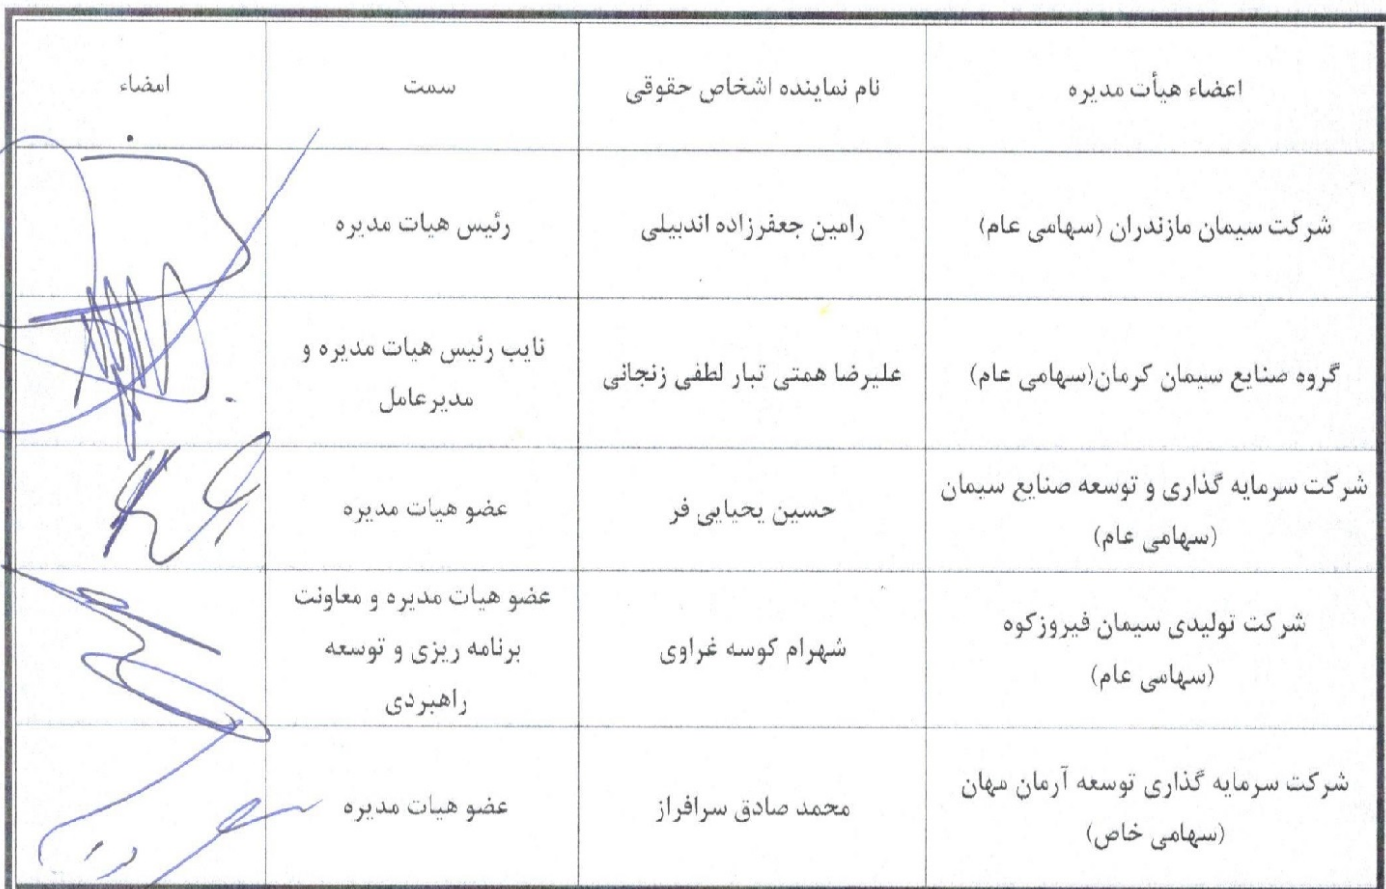 اعضاء هیأت مدیره
نام نماینده اشخاص حقوقی
سمت
امضاء
شرکت سیمان مازندران (سهامی عام)
رامین جعفرزاده اندبیلی
رئیس هیات مدیره
گروه صنایع سیمان کرمان(سهامی عام)
علیرضا همتی تبار لطفی زنجانی
نایب رئیس هیات مدیره و
مدیرعامل
شرکت سرمایه گذاری و توسعه صنایع سیمان
(سهامی عام)
حسین یحیایی فر
عضو هیات مدیره
شرکت تولیدی سیمان فیروزکوه
(سهامی عام)
شهرام کوسه غراوی
عضو هیات مدیره و معاونت
برنامه ریزی و توسعه
راهبردی
شرکت سرمایه گذاری توسعه آرمان مهان
(سهامی خاص)
محمد صادق سرافراز
عضو هیات مدیره